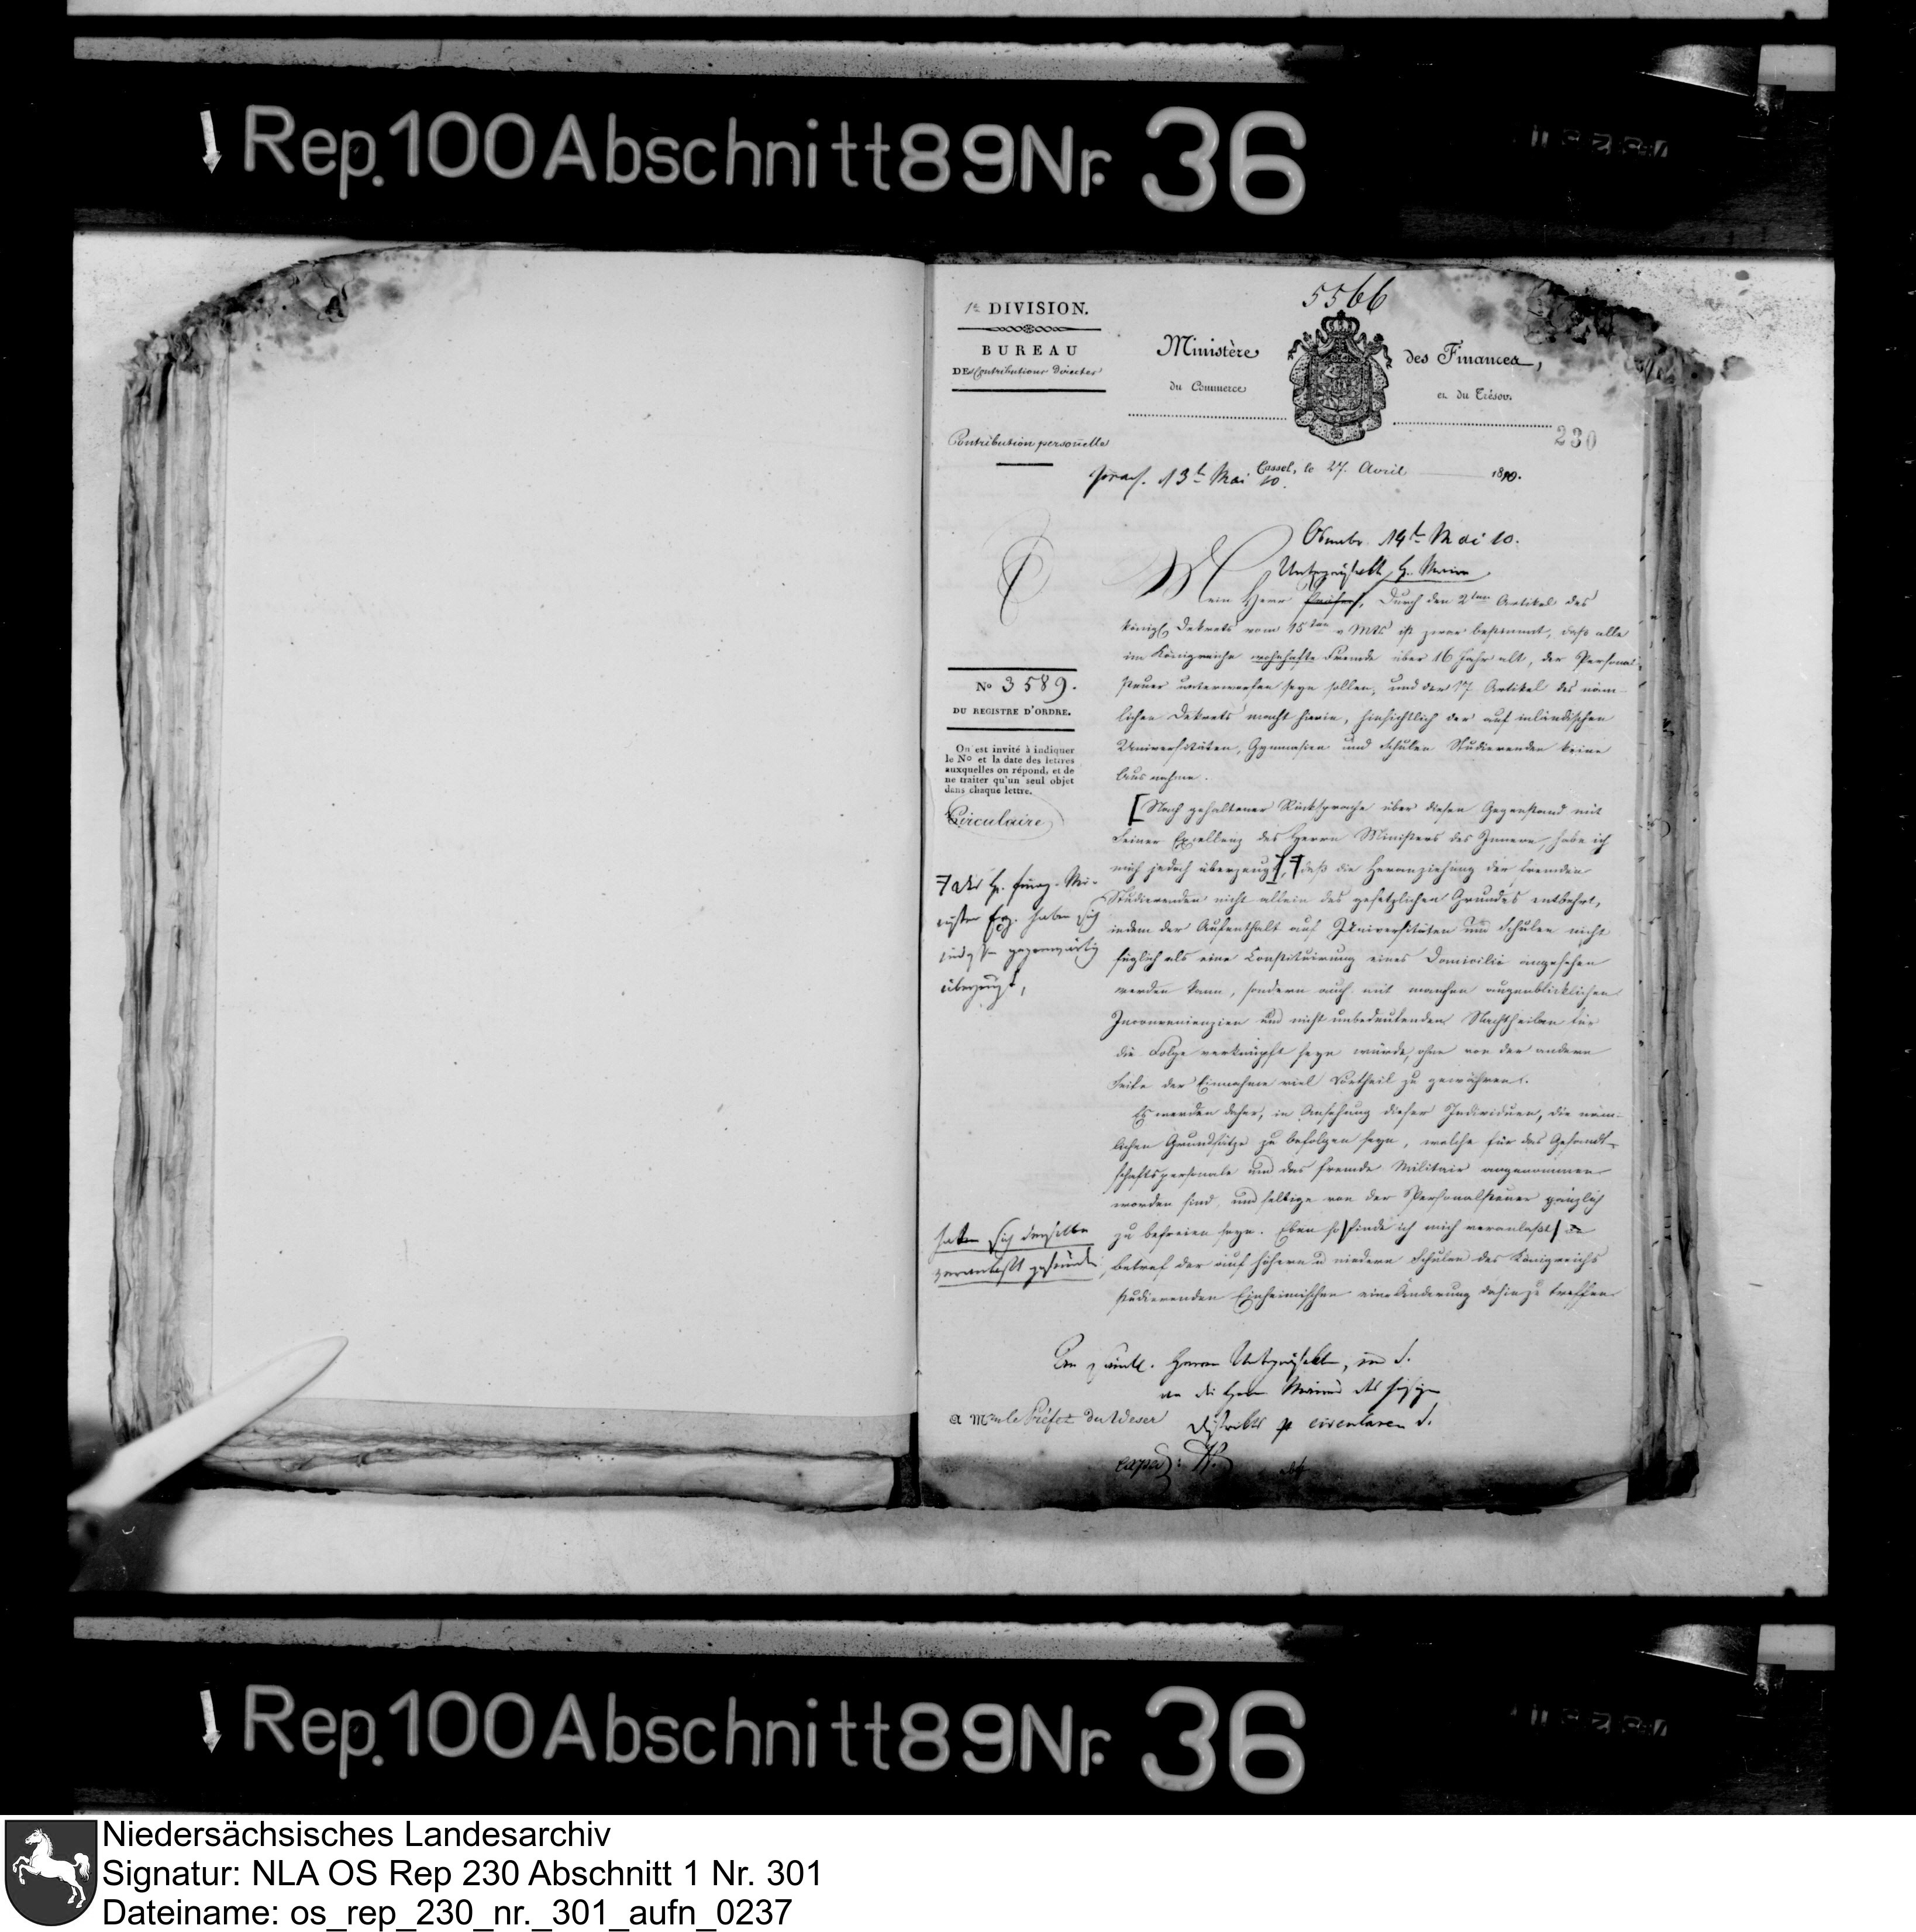 Rep. 100 Abschnitt 89 Nr. 36
5566
1te DIVISION.
BUREAU
DEs Contributions directes
Ministère des Finances,
du Commerce et du Trésor.
230
Contribution personelle
Cassel, le 27. Avril 1810.
praes. 13t Mai 10.
Osnabr. 14t Mai 10.
Mein Herr Präfect, Durch den 2ten Artikel des
königl Dekrets vom 15ten v Mts ist zwar bestimmt, daß alle
im Königreiche wohnhafte Fremde über 16 Jahr alt, der Personal-
steuer unterworfen seyn sollen, und der 17 Artikel des näm-
lichen Dekrets macht hierin, hinsichtlich der auf inländischen
Universitäten, Gymnasien und Schulen Studierenden keine
Ausnahme.
No 3589.
DU REGISTRE D'ORDRE.
On est invité à indiquer
le No et la date des lettres
auxquelles on répond, et de
ne traiter qu'un seul objet
dans chaque lettre.
Circulaire
[Nach gehaltener Rücksprache über diesen Gegenstand mit
Seiner Excellenz des Herrn Ministers des Innern, habe ich
mich jedoch überzeugt], daß die Heranziehung der fremden
Studierenden nicht allein des gesetzlichen Grundes entbehrt,
indem der Aufenthalt auf Universitäten und Schulen nicht
füglich als eine Constituirung eines Domicilii angesehen
werden kann, sondern auch mit manchen augenblicklichen
Inconvenienzien und nicht unbedeutenden Nachtheilen für
die Folge verknüpft seyn würde, ohne von der andern
Seite der Einnahme viel Vortheil zu gewähren.
Der H. Finanz-Mi-
nister Exz. haben sich
gegenwärtig
überzeugt,
Es werden daher, in Ansehung dieser Individuen, die näm-
lichen Grundsätze zu befolgen seyn, welche für das Gesandt-
schaftspersonale und das fremde Militair angenommen
worden sind, und selbige von der Personalsteuer gänzlich
zu befreien seyn. Eben so [finde ich mich veranlaßt] in
betref der auf höhern u niedern Schulen des Königreichs
studierenden Einheimischen eine Änderung dahin zu treffen
haben sich dieselben
veranlaßt gefunden
An sämtl. Herren Unterpräfekten, so d.
an die Herren Maires des hiesigen
Distrikts per circulare d.
a Mr le Préfet du Weser
Rep. 100 Abschnitt 89 Nr. 36
Niedersächsisches Landesarchiv
Signatur: NLA OS Rep 230 Abschnitt 1 Nr. 301
Dateiname: os_rep_230_nr._301_aufn_0237